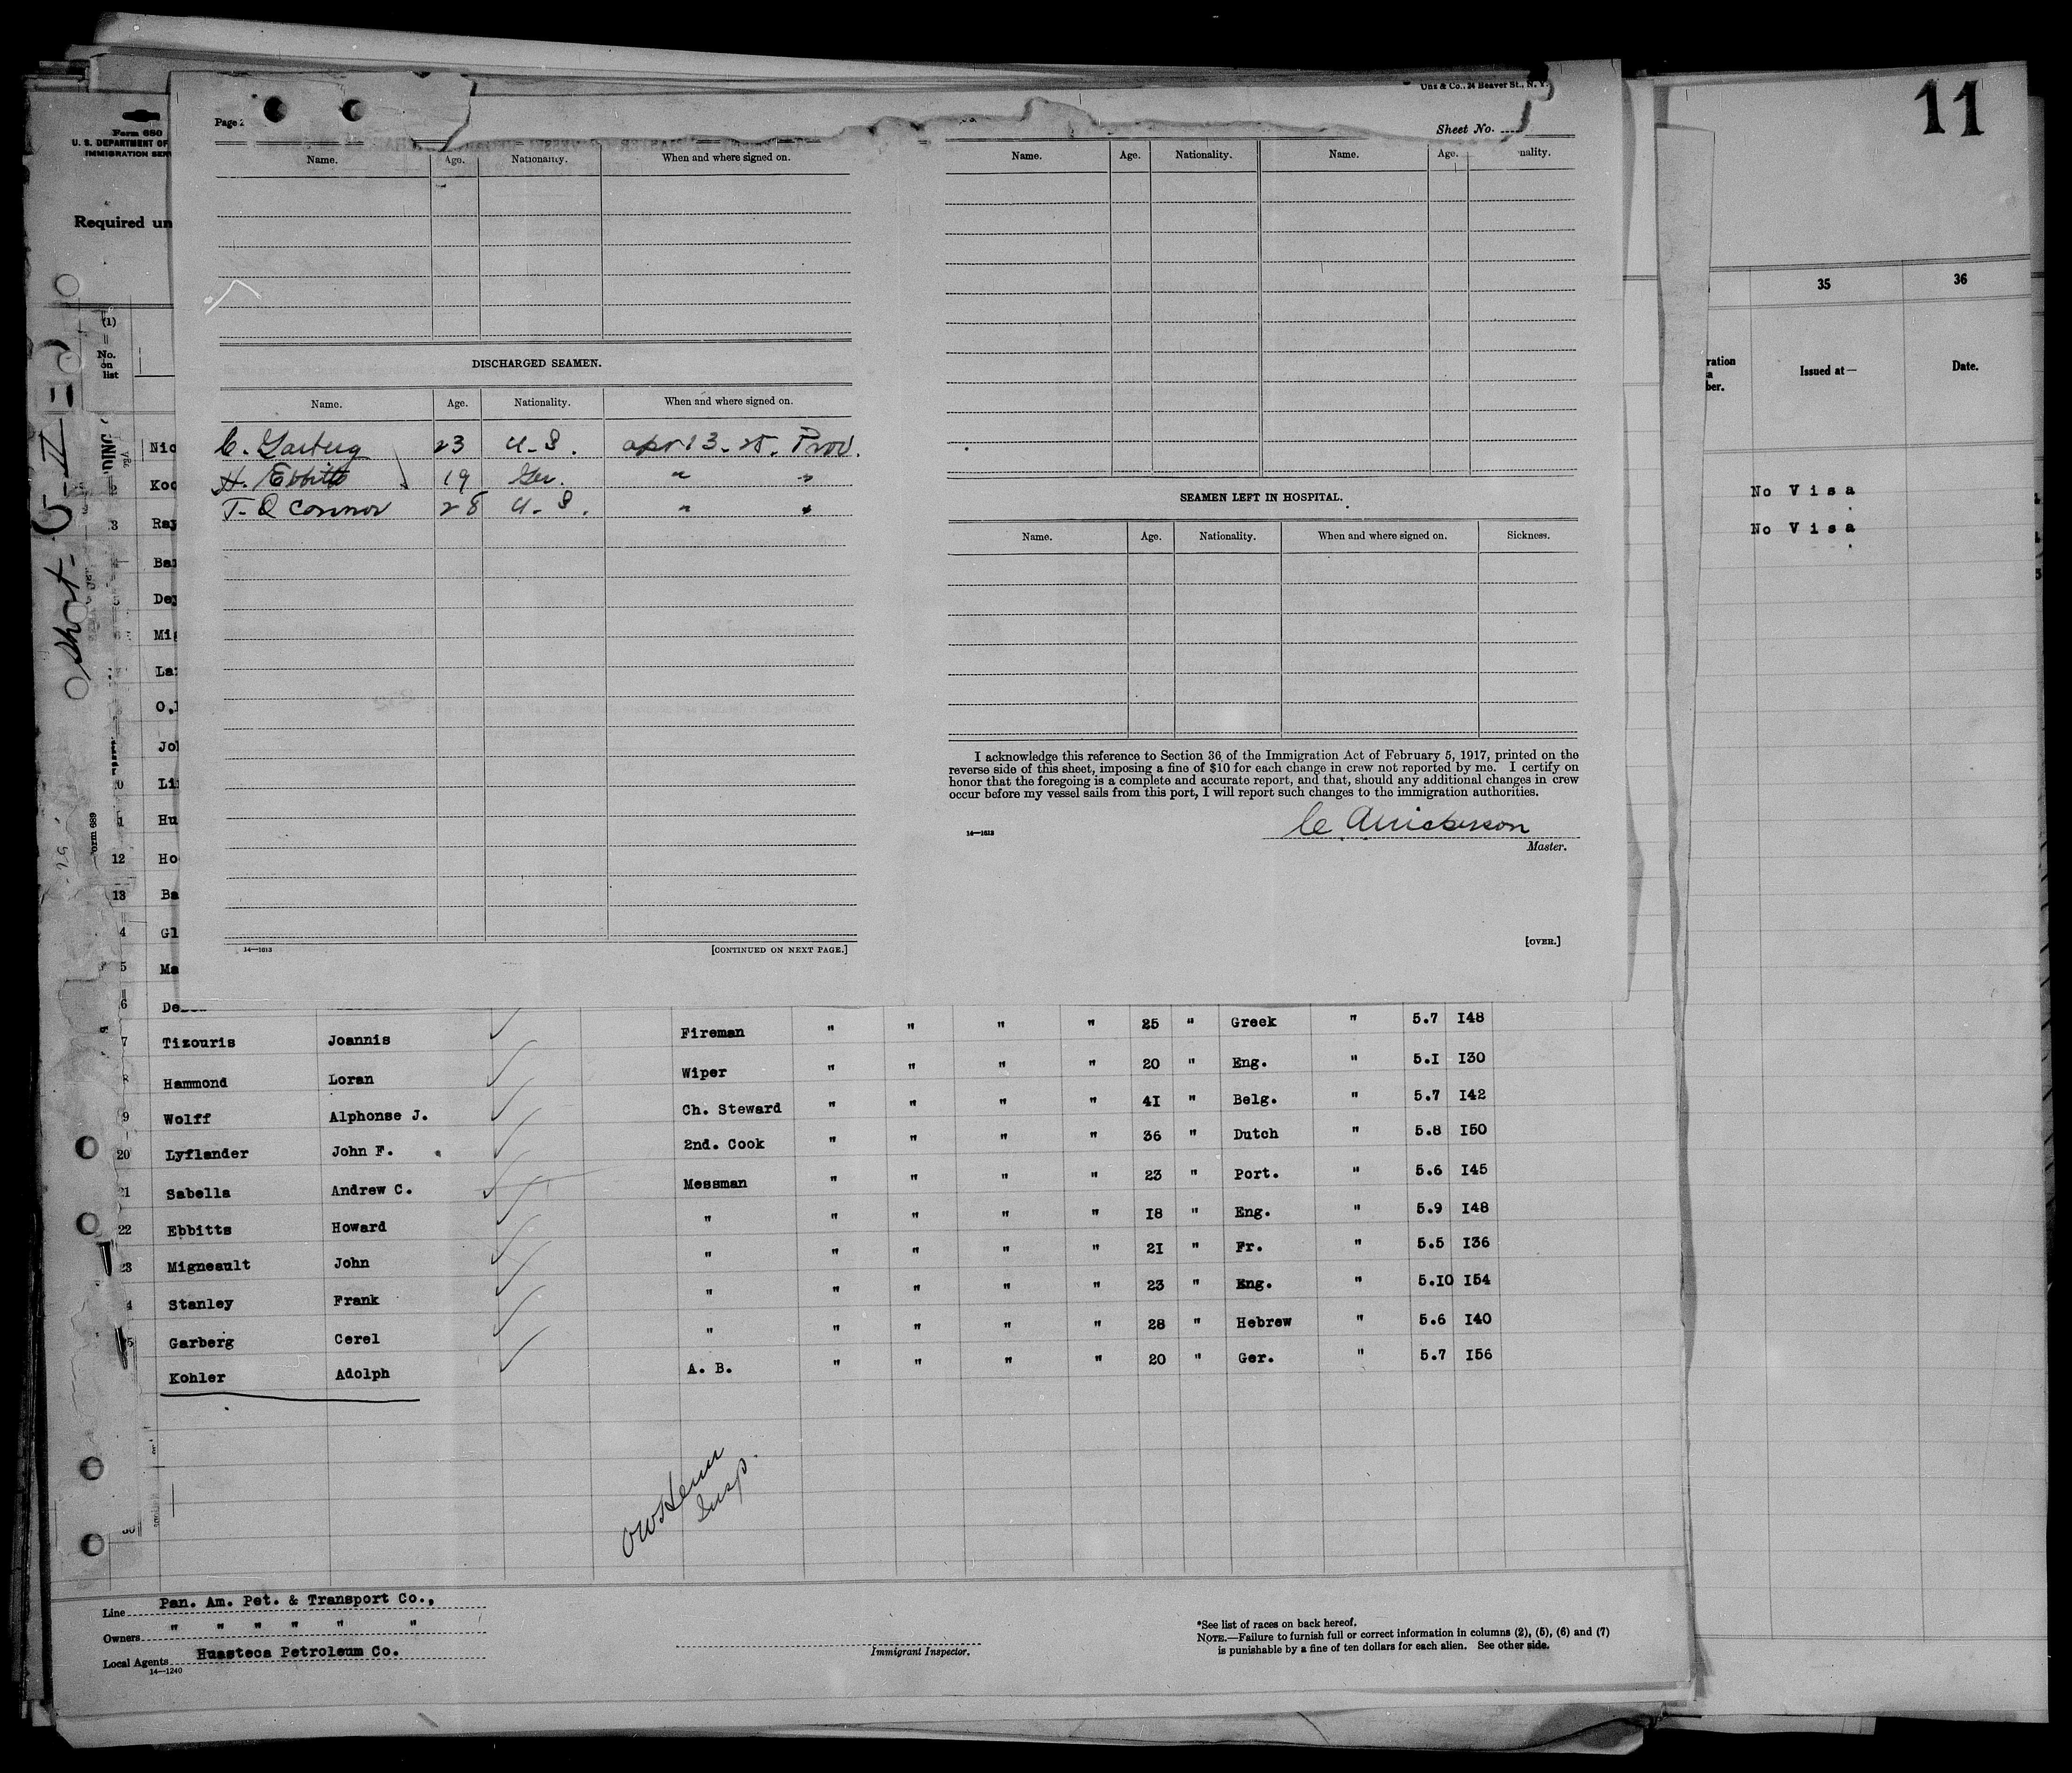 11
Uns & Co., 24 Beaver St., N. Y.
Page 2
Sheet No.
Form 680
U. S. DEPARTMENT OF
IMMIGRATION SER
Required un
Name. Age. Nationality. When and where signed on.
Name. Age. Nationality. Name. Age. nality.
DISCHARGED SEAMEN.
Name. Age. Nationality. When and where signed on.
C. Garberg 23 U.S. Apr 13-25. Prov.
H. Ebbitts 19 Ger. " "
T. O Connor 28 U.S. " "
[CONTINUED ON NEXT PAGE.]
14—1613
SEAMEN LEFT IN HOSPITAL.
Name. Age. Nationality. When and where signed on. Sickness.
I acknowledge this reference to Section 36 of the Immigration Act of February 5, 1917, printed on the
reverse side of this sheet, imposing a fine of $10 for each change in crew not reported by me. I certify on
honor that the foregoing is a complete and accurate report, and that, should any additional changes in crew
occur before my vessel sails from this port, I will report such changes to the immigration authorities.
14—1613
Master.
[OVER.]
35 36
ration
a
ber.
Issued at—
Date.
No Visa
No Visa
(1)
No.
on
list
Short
Form 689
Nic
Koc
3 Ray
Bar
Dey
Mig
La
O,
Jo
0 Li
1 Hu
12 Ho
13 Ba
4 Gl
5 Ma
6 De
7 Tizouris Joannis Fireman " " " " 25 " Greek " 5.7 I48
8 Hammond Loran Wiper " " " " 20 " Eng. " 5.I I30
9 Wolff Alphonse J. Ch. Steward " " " " 4I " Belg. " 5.7 I42
20 Lyflander John F. 2nd. Cook " " " " 36 " Dutch " 5.8 I50
21 Sabella Andrew C. Messman " " " " 23 " Port. " 5.6 I45
22 Ebbitts Howard " " " " " I8 " Eng. " 5.9 I48
23 Migneault John " " " " " 2I " Fr. " 5.5 I36
4 Stanley Frank " " " " " 23 " Eng. " 5.I0 I54
5 Garberg Cerel " " " " " 28 " Hebrew " 5.6 I40
Kohler Adolph A. B. " " " " 20 " Ger. " 5.7 I56
Insp.
Line Pan. Am. Pet. & Transport Co.,
Owners " " " " " "
Local Agents Huasteca Petroleum Co.
14—1240
Immigrant Inspector.
*See list of races on back hereof.
NOTE.—Failure to furnish full or correct information in columns (2), (5), (6) and (7)
is punishable by a fine of ten dollars for each alien. See other side.